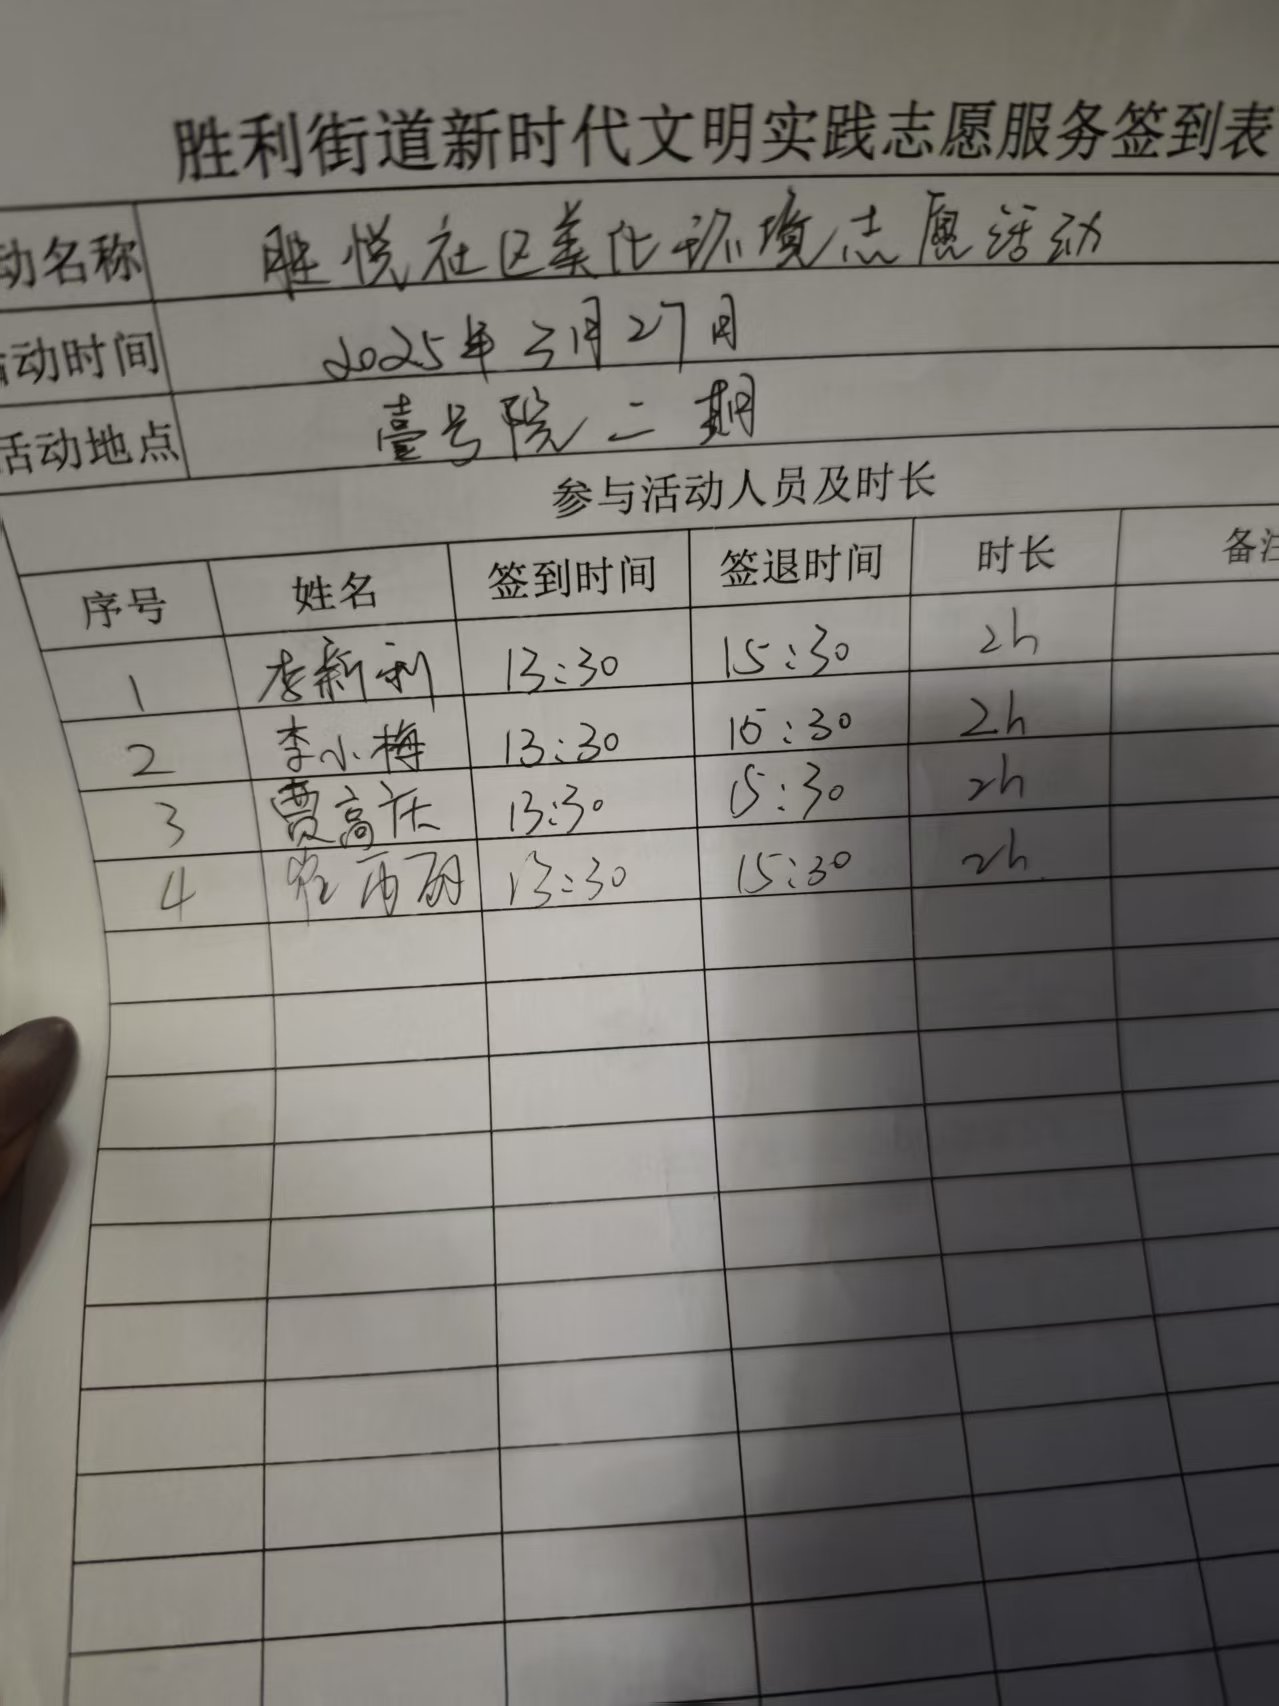 胜利街道新时代文明实践志愿服务签到表
动名称 胜悦社区美化环境志愿活动
活动时间 2025年3月27日
活动地点 壹号院二期
参与活动人员及时长
序号 姓名 签到时间 签退时间 时长 备注
1 李新利 13:30 15:30 2h
2 李小梅 13:30 15:30 2h
3 贾高 13:30 15:30 2h
4 丽 13:30 15:30 2h